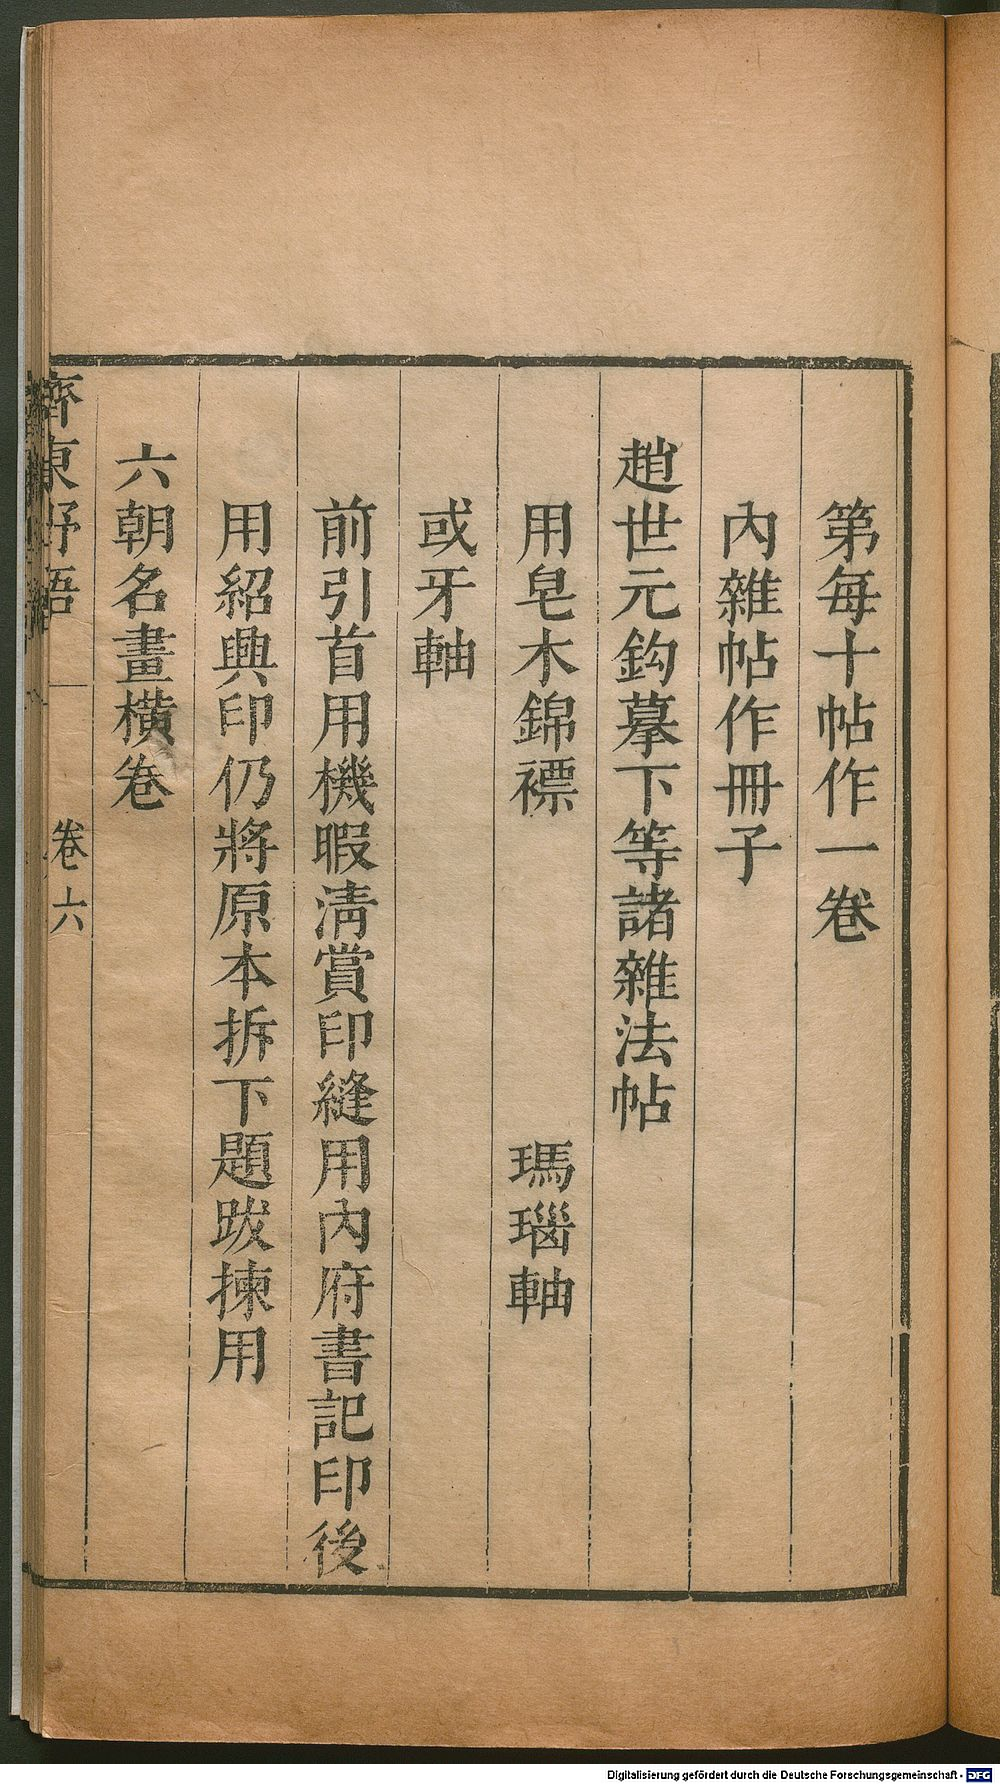 第每十帖作一卷
內雜帖作冊子
趙世元鈎摹下等諸雜法帖
用皂木錦褾　瑪瑙軸
或牙軸
前引首用機暇淸賞印縫用內府書記印後
用紹興印仍將原本拆下題跋揀用
六朝名畫橫卷
齊東野語　卷六
Digitalisierung gefördert durch die Deutsche Forschungsgemeinschaft - DFG